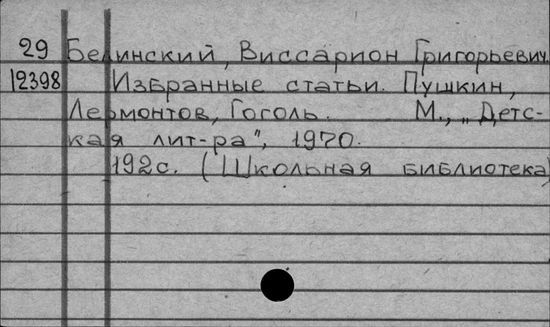 29 Белинский, Виссарион Григорьевич.
12398 Избранные статьи. Пушкин,
Лермонтов, Гоголь. М., „Детс-
кая лит-ра", 1970.
192с. (Школьная библиотека)